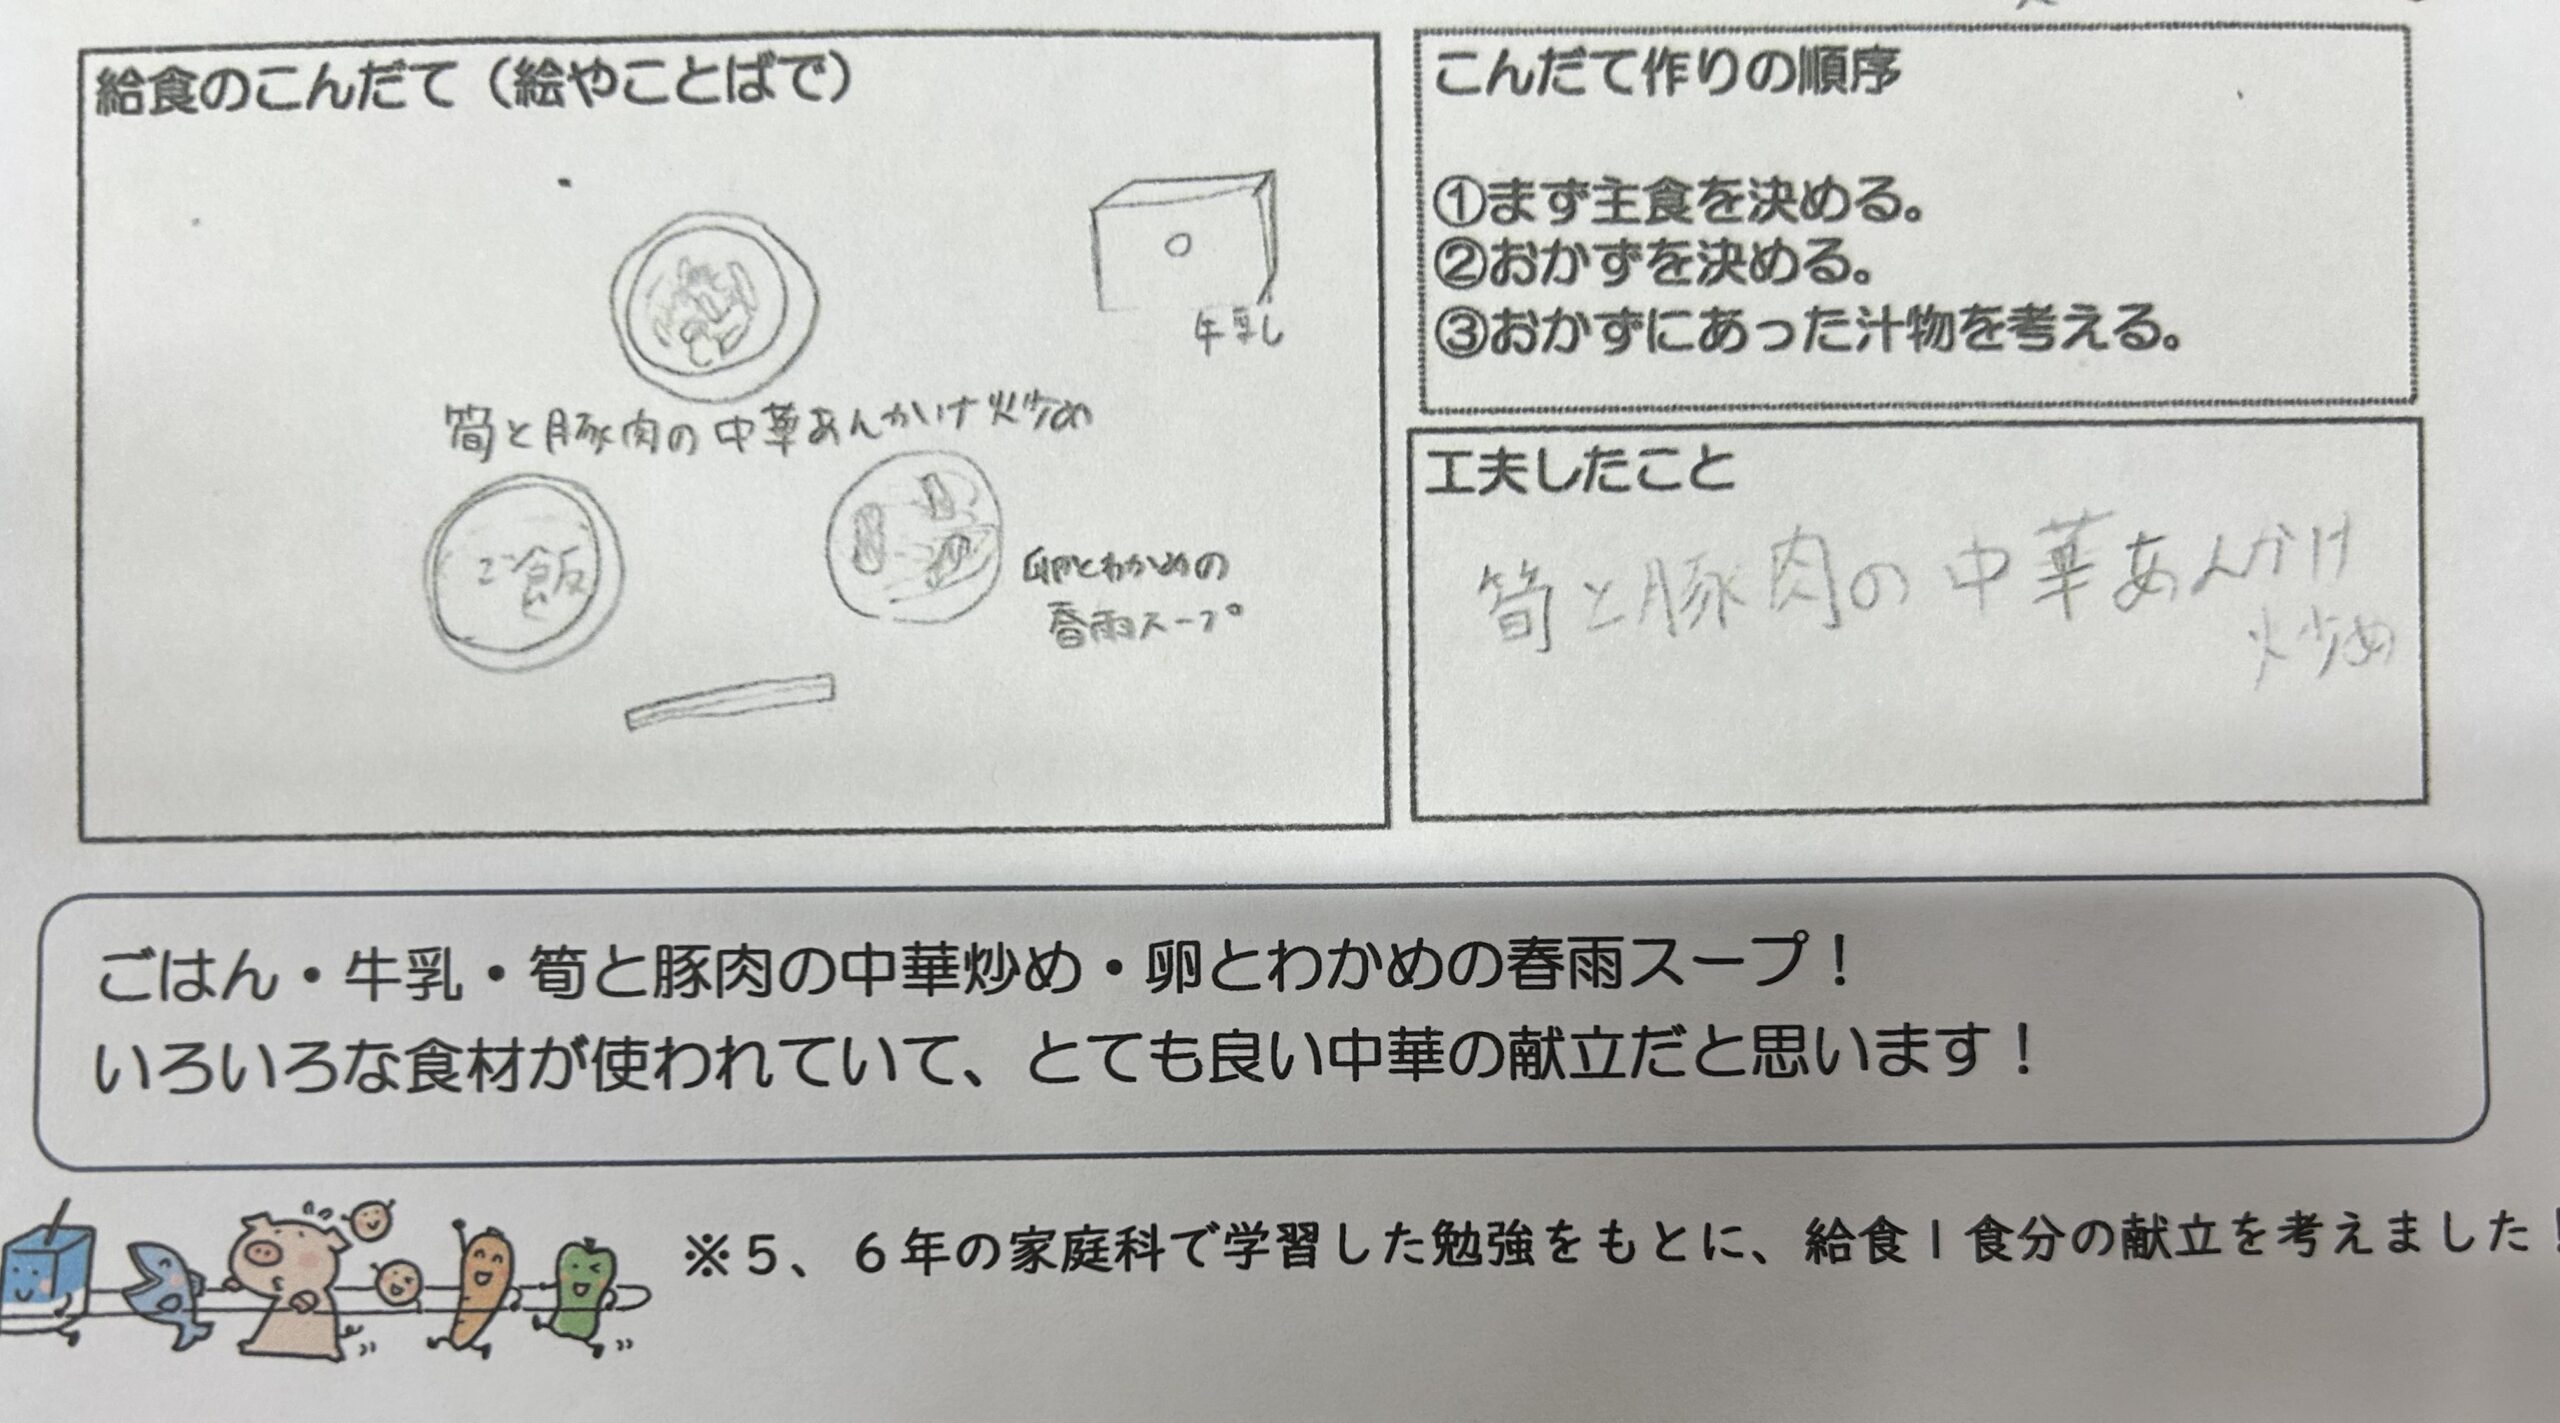 給食のこんだて（絵やことばで）
牛乳
筍と豚肉の中華あんかけ炒め
ご飯
卵とわかめの
春雨スープ
こんだて作りの順序
①まず主食を決める。
②おかずを決める。
③おかずにあった汁物を考える。
工夫したこと
筍と豚肉の中華あんかけ
炒め
ごはん・牛乳・筍と豚肉の中華炒め・卵とわかめの春雨スープ！
いろいろな食材が使われていて、とても良い中華の献立だと思います！
※５、６年の家庭科で学習した勉強をもとに、給食１食分の献立を考えました！